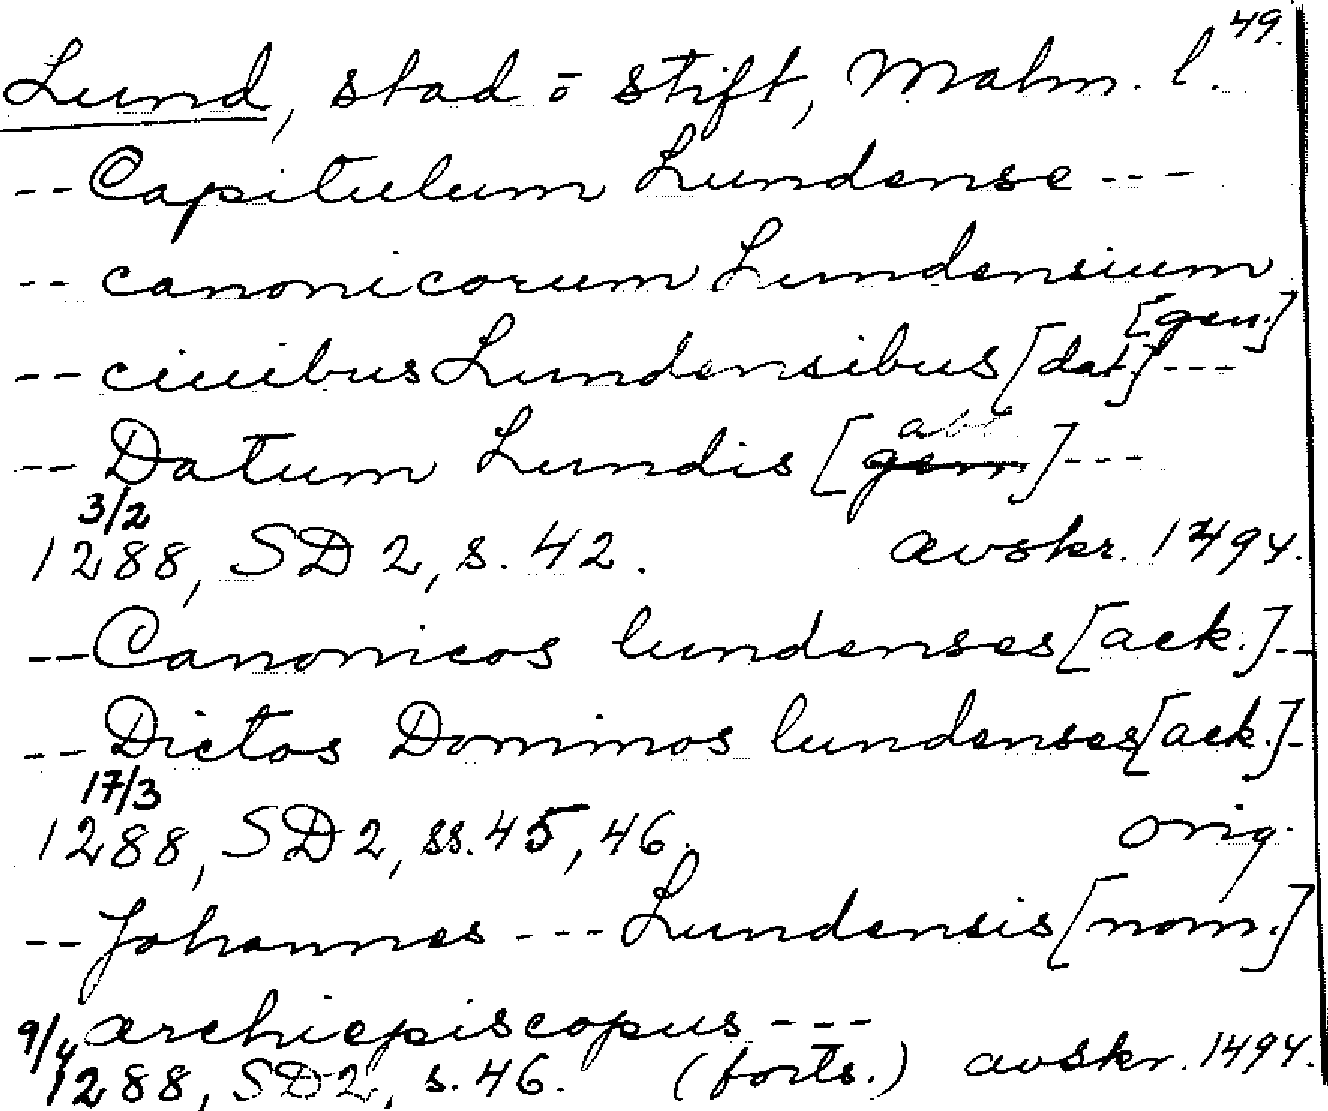 49.
Lund, stad o stift, Malm. l.
-- Capitulum Lundense ---
-- canonicorum Lundensium
[gen.]
-- ciuibus Lundensibus [dat.] ---
-- Datum Lundis [abl.] ---
3/2
1288, SD 2, s. 42. avskr. 1494.
-- Canonicos lundenses [ack.] --
-- Dictos Dominos lundenses [ack.] -
17/3
1288, SD 2, ss. 45, 46. orig.
-- Johannes --- Lundensis [nom.]
archiepiscopus ---
9/4
1288, SD 2, s. 46. (forts.) avskr. 1494.